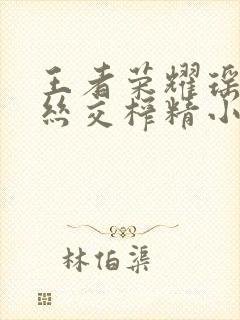 王者荣耀瑶
丝交榨精小
林伯渠